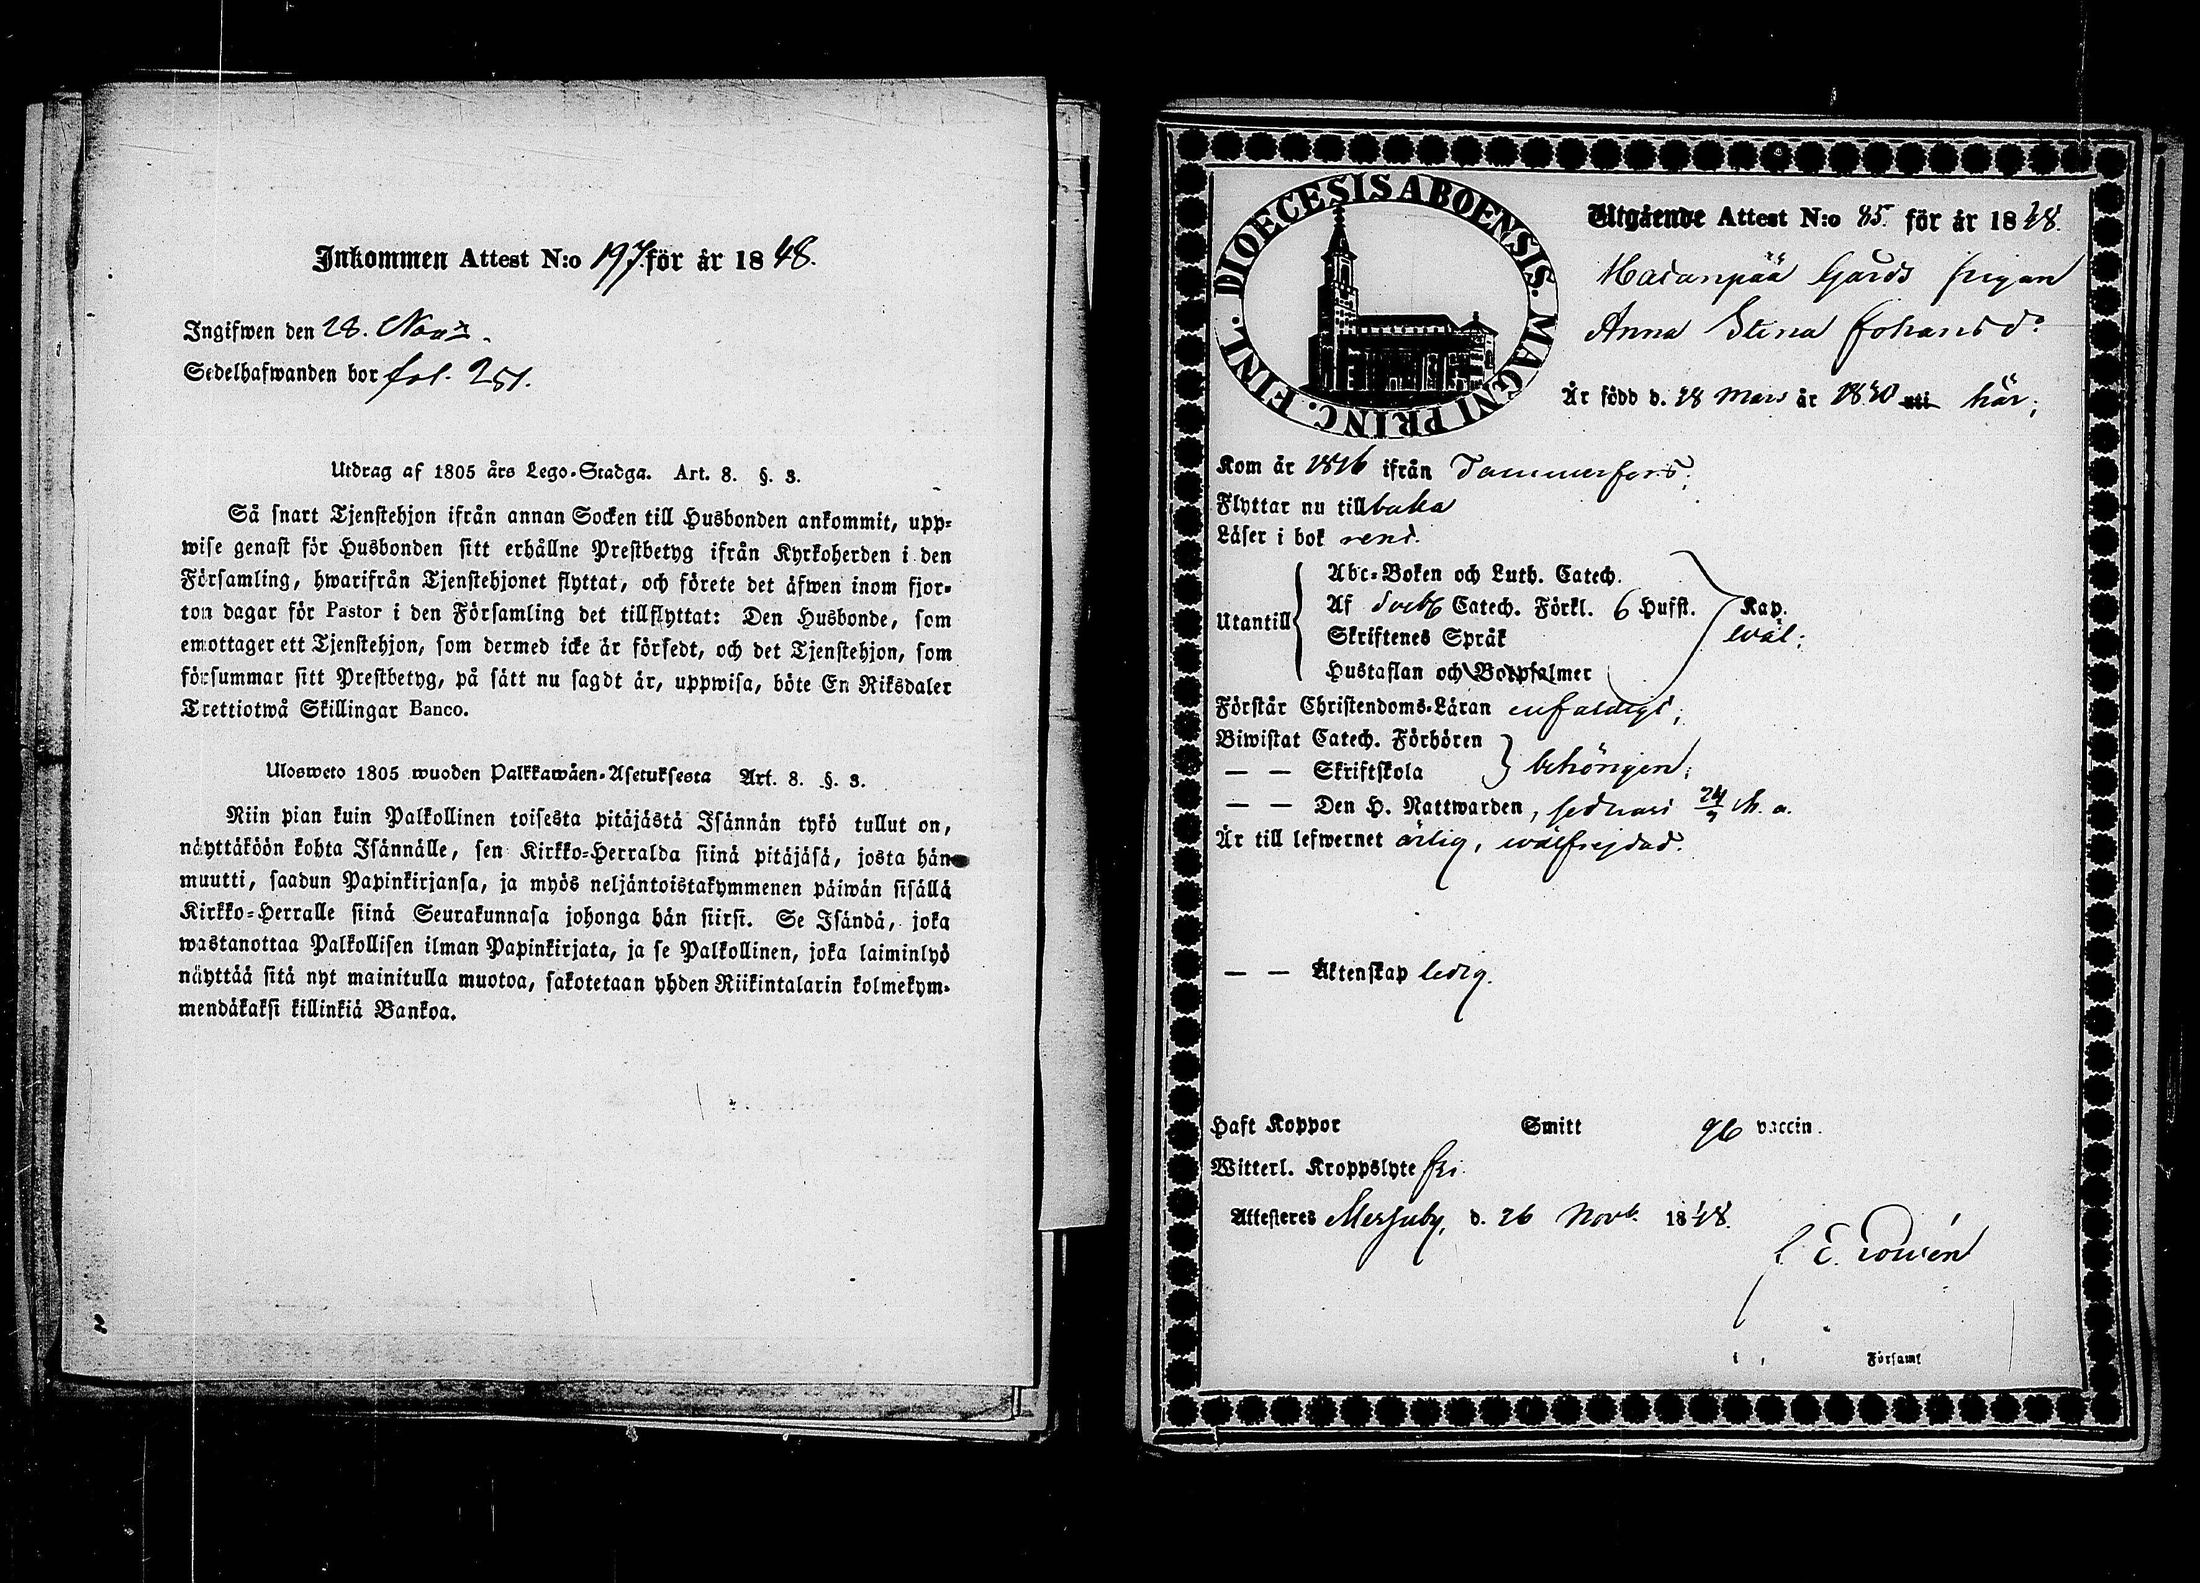 Inkommen Attest N:o 197. för år 1848.
Ingifwen den 28. Nov:r.
Sedelhafwanden bor fol. 251.
Utdrag af 1805 års Lego-Stadga. Art. 8. §. 3.
Så snart Tjenstehjon ifrån annan Socken till Husbonden ankommit, upp-
wise genast för Husbonden sitt erhållne Prestbetyg ifrån Kyrkoherden i den
Församling, hwarifrån Tjenstehjonet flyttat, och förete det äfwen inom fjor-
ton dagar för Pastor i den Församling det tillflyttat: Den Husbonde, som
emottager ett Tjenstehjon, som dermed icke är försedt, och det Tjenstehjon, som
försummar sitt Prestbetyg, på sätt nu sagdt är, uppwisa, böte En Riksdaler
Trettiotwå Skillingar Banco.
Ulosweto 1805 wuoden Palkkawäen-Asetuksesta Art. 8. §. 3.
Niin pian kuin Palkollinen toisesta pitäjästä Isännän tykö tullut on,
näyttäköön kohta Isännälle, sen Kirkko-Herralda siinä pitäjäsä, josta hän
muutti, saadun Papinkirjansa, ja myös neljäntoistakymmenen päiwän sisällä
Kirkko-Herralle siinä Seurakunnasa johonga hän siirsi. Se Isändä, joka
wastanottaa Palkollisen ilman Papinkirjata, ja se Palkollinen, joka laiminlyö
näyttää sitä nyt mainitulla muotoa, sakotetaan yhden Riikintalarin kolmekym-
mendäkaksi killinkiä Bankoa.
DIOECESIS ABOENSIS. MAGNI PRINC. FINL.
Utgående Attest N:o 85. för år 1848.
Gårds pigan
Anna Stina Johansd:
Är född d. 28 Mars år 1820 uti här;
Kom år 1846 ifrån Tammerfors;
Flyttar nu tillbaka
Läser i bok rent.
Abc-Boken och Luth. Catech.
Utantill Af Catech. Förkl. 6 Hufst. Kap.
wäl;
Skriftenes Språk
Hustaflan och Botpsalmer
Förstår Christendoms-Läran enfaldigt;
Biwistat Catech. Förhören
— — Skriftskola behörigen;
— — Den H. Nattwarden, sednast 24/9 h. a.
Är till lefwernet ärlig, wälfrejdad.
— — Äktenskap ledig.
Haft Koppor Smitt vaccin.
Witterl. Kroppslyte fri.
Attesteres Messuby, d. 26 Novb. 1848.
i Församl